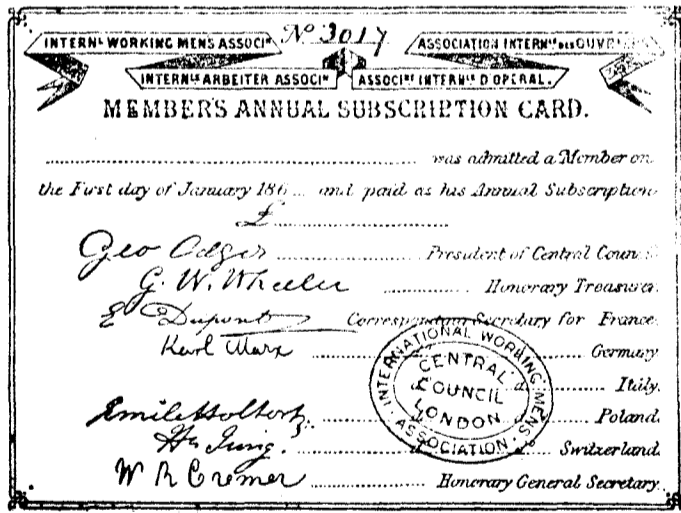 No 3017
INTERNL WORKING MENS ASSOCIN
ASSOCIATION INTERNLE DES OUVRIERS
INTERNLE ARBEITER ASSOCIN
ASSOCINE INTERNLE D'OPERAI.
MEMBER'S ANNUAL SUBSCRIPTION CARD.
was admitted a Member on
the First day of January 186 and paid as his Annual Subscription
£
Geo Odger President of Central Council
G. W. Wheeler Honorary Treasurer.
E Dupont Corresponding Secretary for France.
Karl Marx Germany
d. Italy.
Emile Holtorp Poland.
Hn Jung. Switzerland.
W R Cremer Honorary General Secretary.
INTERNATIONAL WORKING MENS ASSOCIATION
CENTRAL
COUNCIL
LONDON